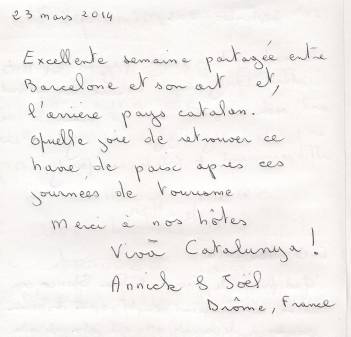 23 mars 2014
Excellente semaine partagée entre
Barcelone et son art et,
l'arrière pays catalan.
Quelle joie de retrouver ce
havre, de paix après ces
journées de tourisme
Merci à nos hôtes
Viva Catalunya !
Annick & Joël
Drôme, France